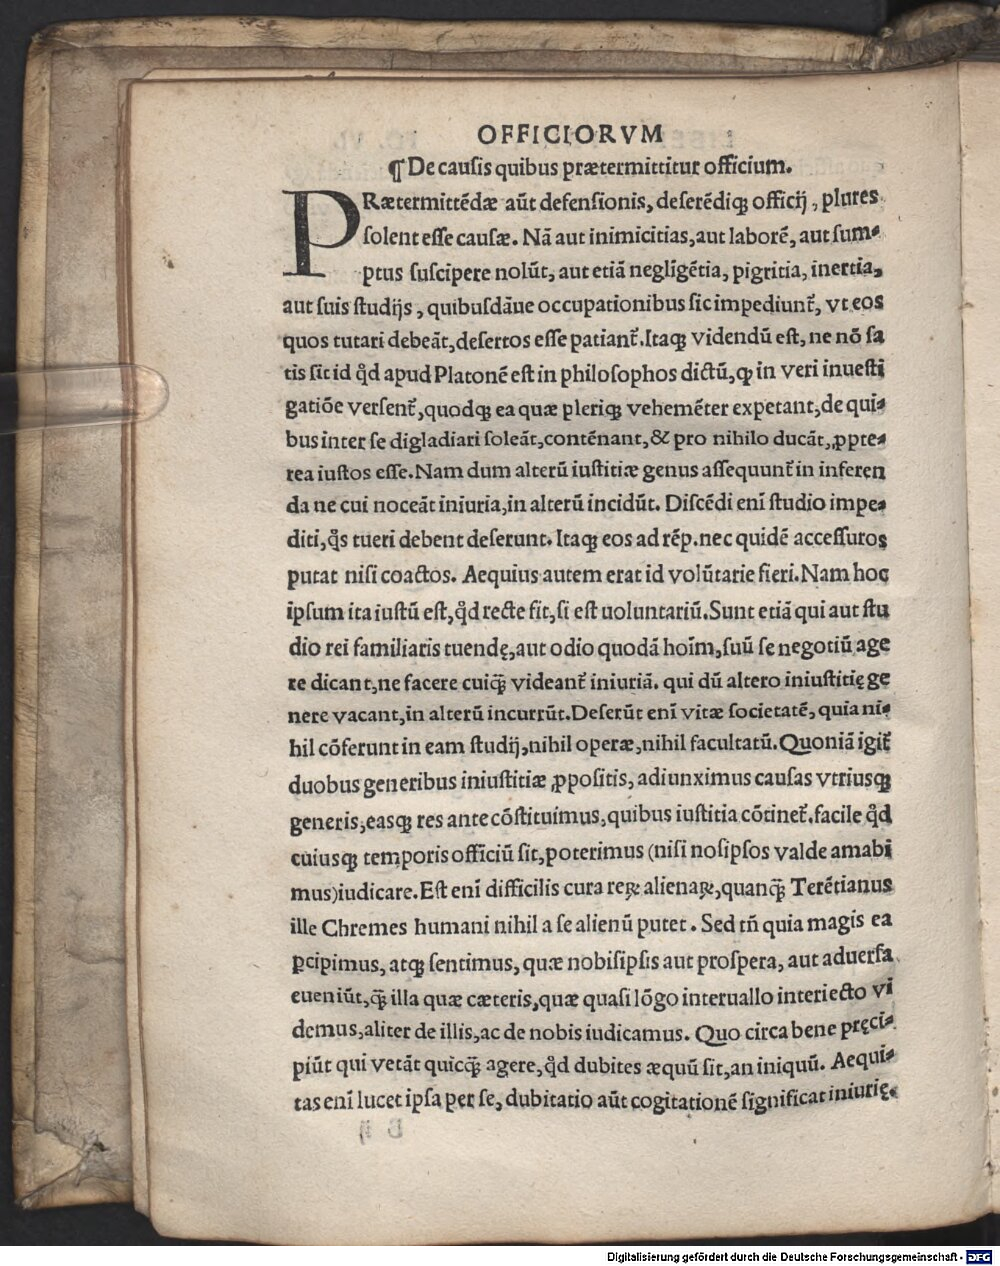 OFFICIORVM
¶ De causis quibus prætermittitur officium.
PRætermittẽdæ aũt defensionis, deserẽdiqꝫ officij, plures
solent esse causæ. Nã aut inimicitias, aut laborẽ, aut sum⸗
ptus suscipere nolũt, aut etiã negligẽtia, pigritia, inertia,
aut suis studijs, quibusdãue occupationibus sic impediunt᷑, vt eos
quos tutari debeãt, desertos esse patiant᷑. Itaqꝫ videndũ est, ne nõ sa
tis sit id qd̓ apud Platonẽ est in philosophos dictũ, ꝙ in veri inuesti
gatiõe versent᷑, quodqꝫ ea quæ pleriqꝫ vehemẽter expetant, de qui⸗
bus inter se digladiari soleãt, contẽnant, & pro nihilo ducãt, ꝓpte⸗
rea iustos esse. Nam dum alterũ iustitiæ genus assequunt᷑ in inferen
da ne cui noceãt iniuria, in alterũ incidũt. Discẽdi enī studio impe⸗
diti, q̊s tueri debent deserunt. Itaqꝫ eos ad rẽp. nec quidẽ accessuros
putat nisi coactos. Aequius autem erat id volũtarie fieri. Nam hoc
ipsum ita iustũ est, qd̓ recte fit, si est uoluntariũ. Sunt etiã qui aut stu
dio rei familiaris tuendę, aut odio quodã hoīm, suũ se negotiũ age
re dicant, ne facere cuiq̃ꝫ videant᷑ iniuriã. qui dũ altero iniustitię ge
nere vacant, in alterũ incurrũt. Deserũt enī vitæ societatẽ, quia ni⸗
hil cõferunt in eam studij, nihil operæ, nihil facultatũ. Quoniã igit᷑
duobus generibus iniustitiæ ꝓpositis, adiunximus causas vtriusqꝫ
generis, easqꝫ res ante cõstituimus, quibus iustitia cõtinet᷑. facile qd̓
cuiusqꝫ temporis officiũ sit, poterimus (nisi nosipsos valde amabi
mus) iudicare. Est enī difficilis cura reꝝ alienaꝝ, quanq̃ꝫ Terẽtianus
ille Chremes humani nihil a se alienũ putet. Sed tñ quia magis ea
ꝑcipimus, atqꝫ sentimus, quæ nobisipsis aut prospera, aut aduersa
eueniũt, q̃ꝫ illa quæ cæteris, quæ quasi lõgo interuallo interiecto vi
demus, aliter de illis, ac de nobis iudicamus. Quo circa bene pręci⸗
piũt qui vetãt quicq̃ꝫ agere, qd̓ dubites æquũ sit, an iniquũ. Aequi⸗
tas enī lucet ipsa per se, dubitatio aũt cogitationẽ significat iniurię.
Digitalisierung gefördert durch die Deutsche Forschungsgemeinschaft - DFG